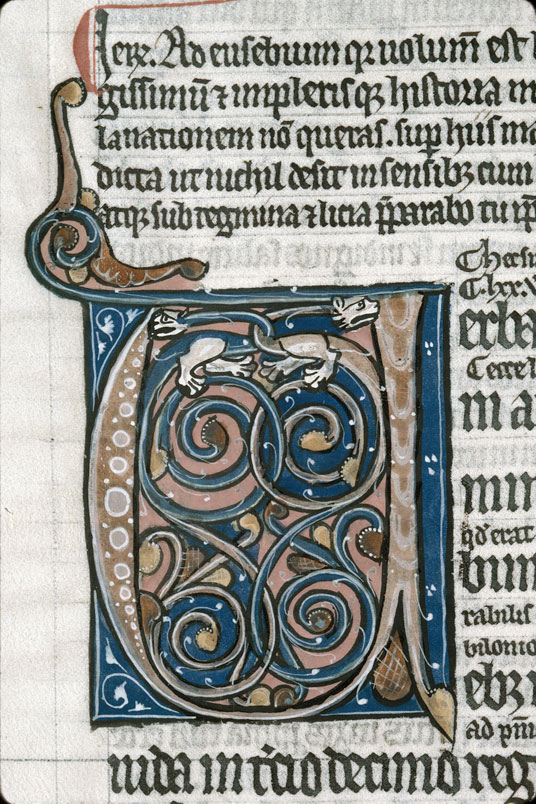 Ierꝫ. Ad eusebium qꝛ uolum̄ est l
gissimū ⁊ impleris qꝫ historia in
lanationem nō queras. suꝑ hiis ma
dicta ut nichil desit in sensibꝫ cum
atqꝫ sub tegmina ⁊ licia p̄parabo tu ip̄
C. lxx.
erba
m a
min
qd̓ erat
bun
rabilis
ebꝫ
ad pm̄
uida in t̓cio decimo reg